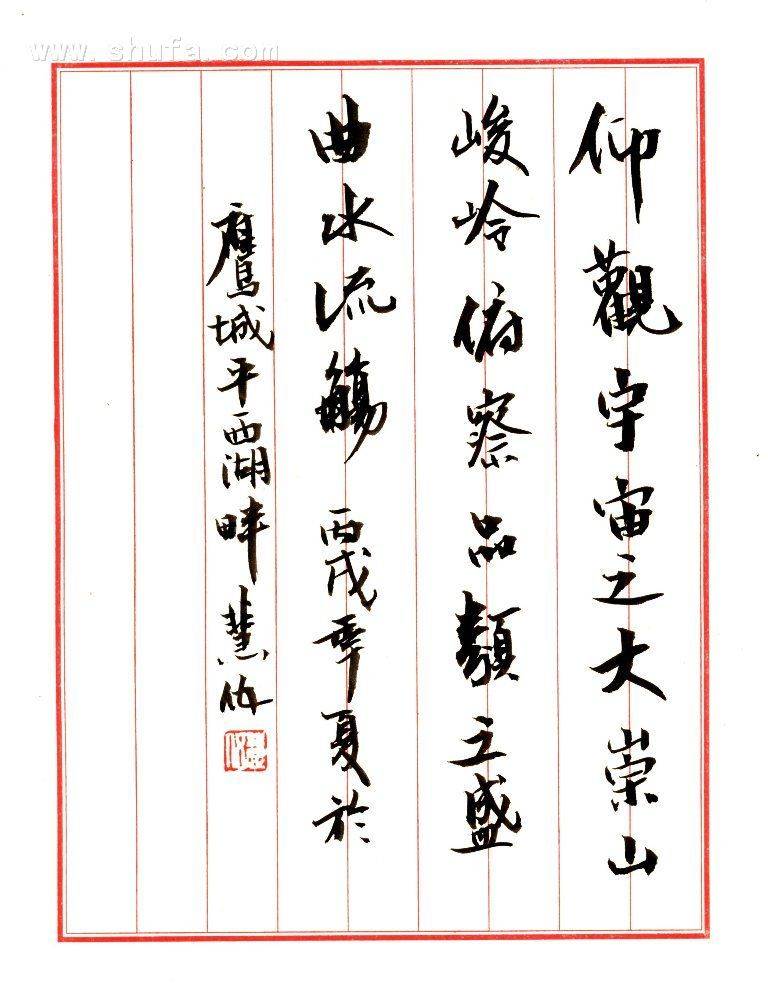 www.shufa.com
仰觀宇宙之大崇山
峻岭俯察品類之盛
曲水流觴 丙戌季夏於
鷹城平西湖畔